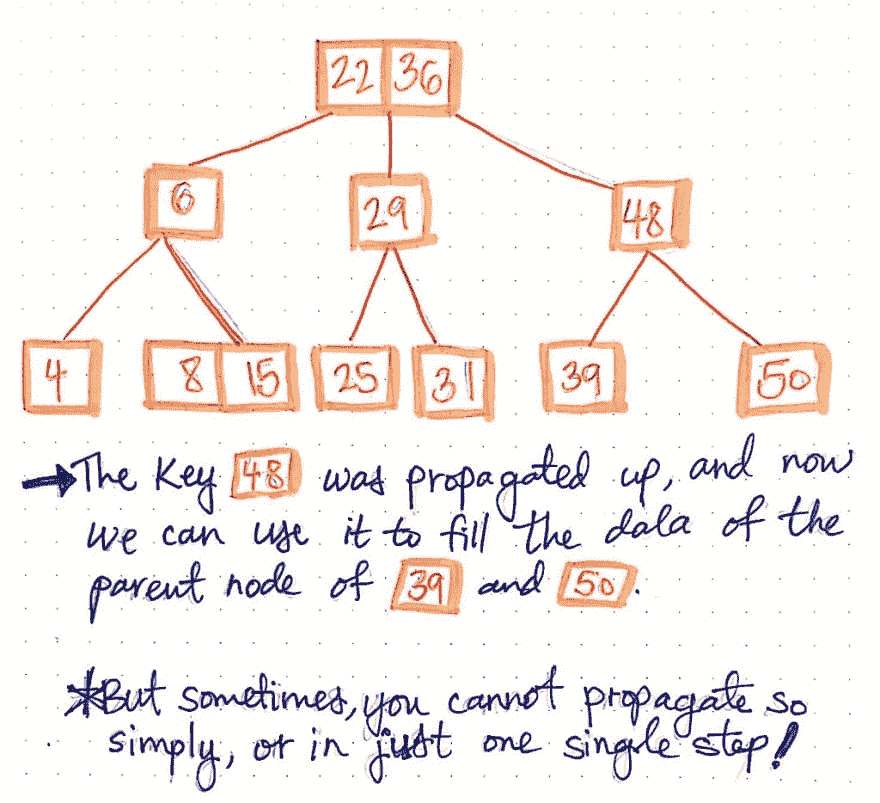 22 36
6 29 48
4 8 15 25 31 39 50
→The Key 48 was propagated up, and now
we can use it to fill the data of the
parent node of 39 and 50.
*But sometimes, you cannot propagate so
simply, or in just one single step!